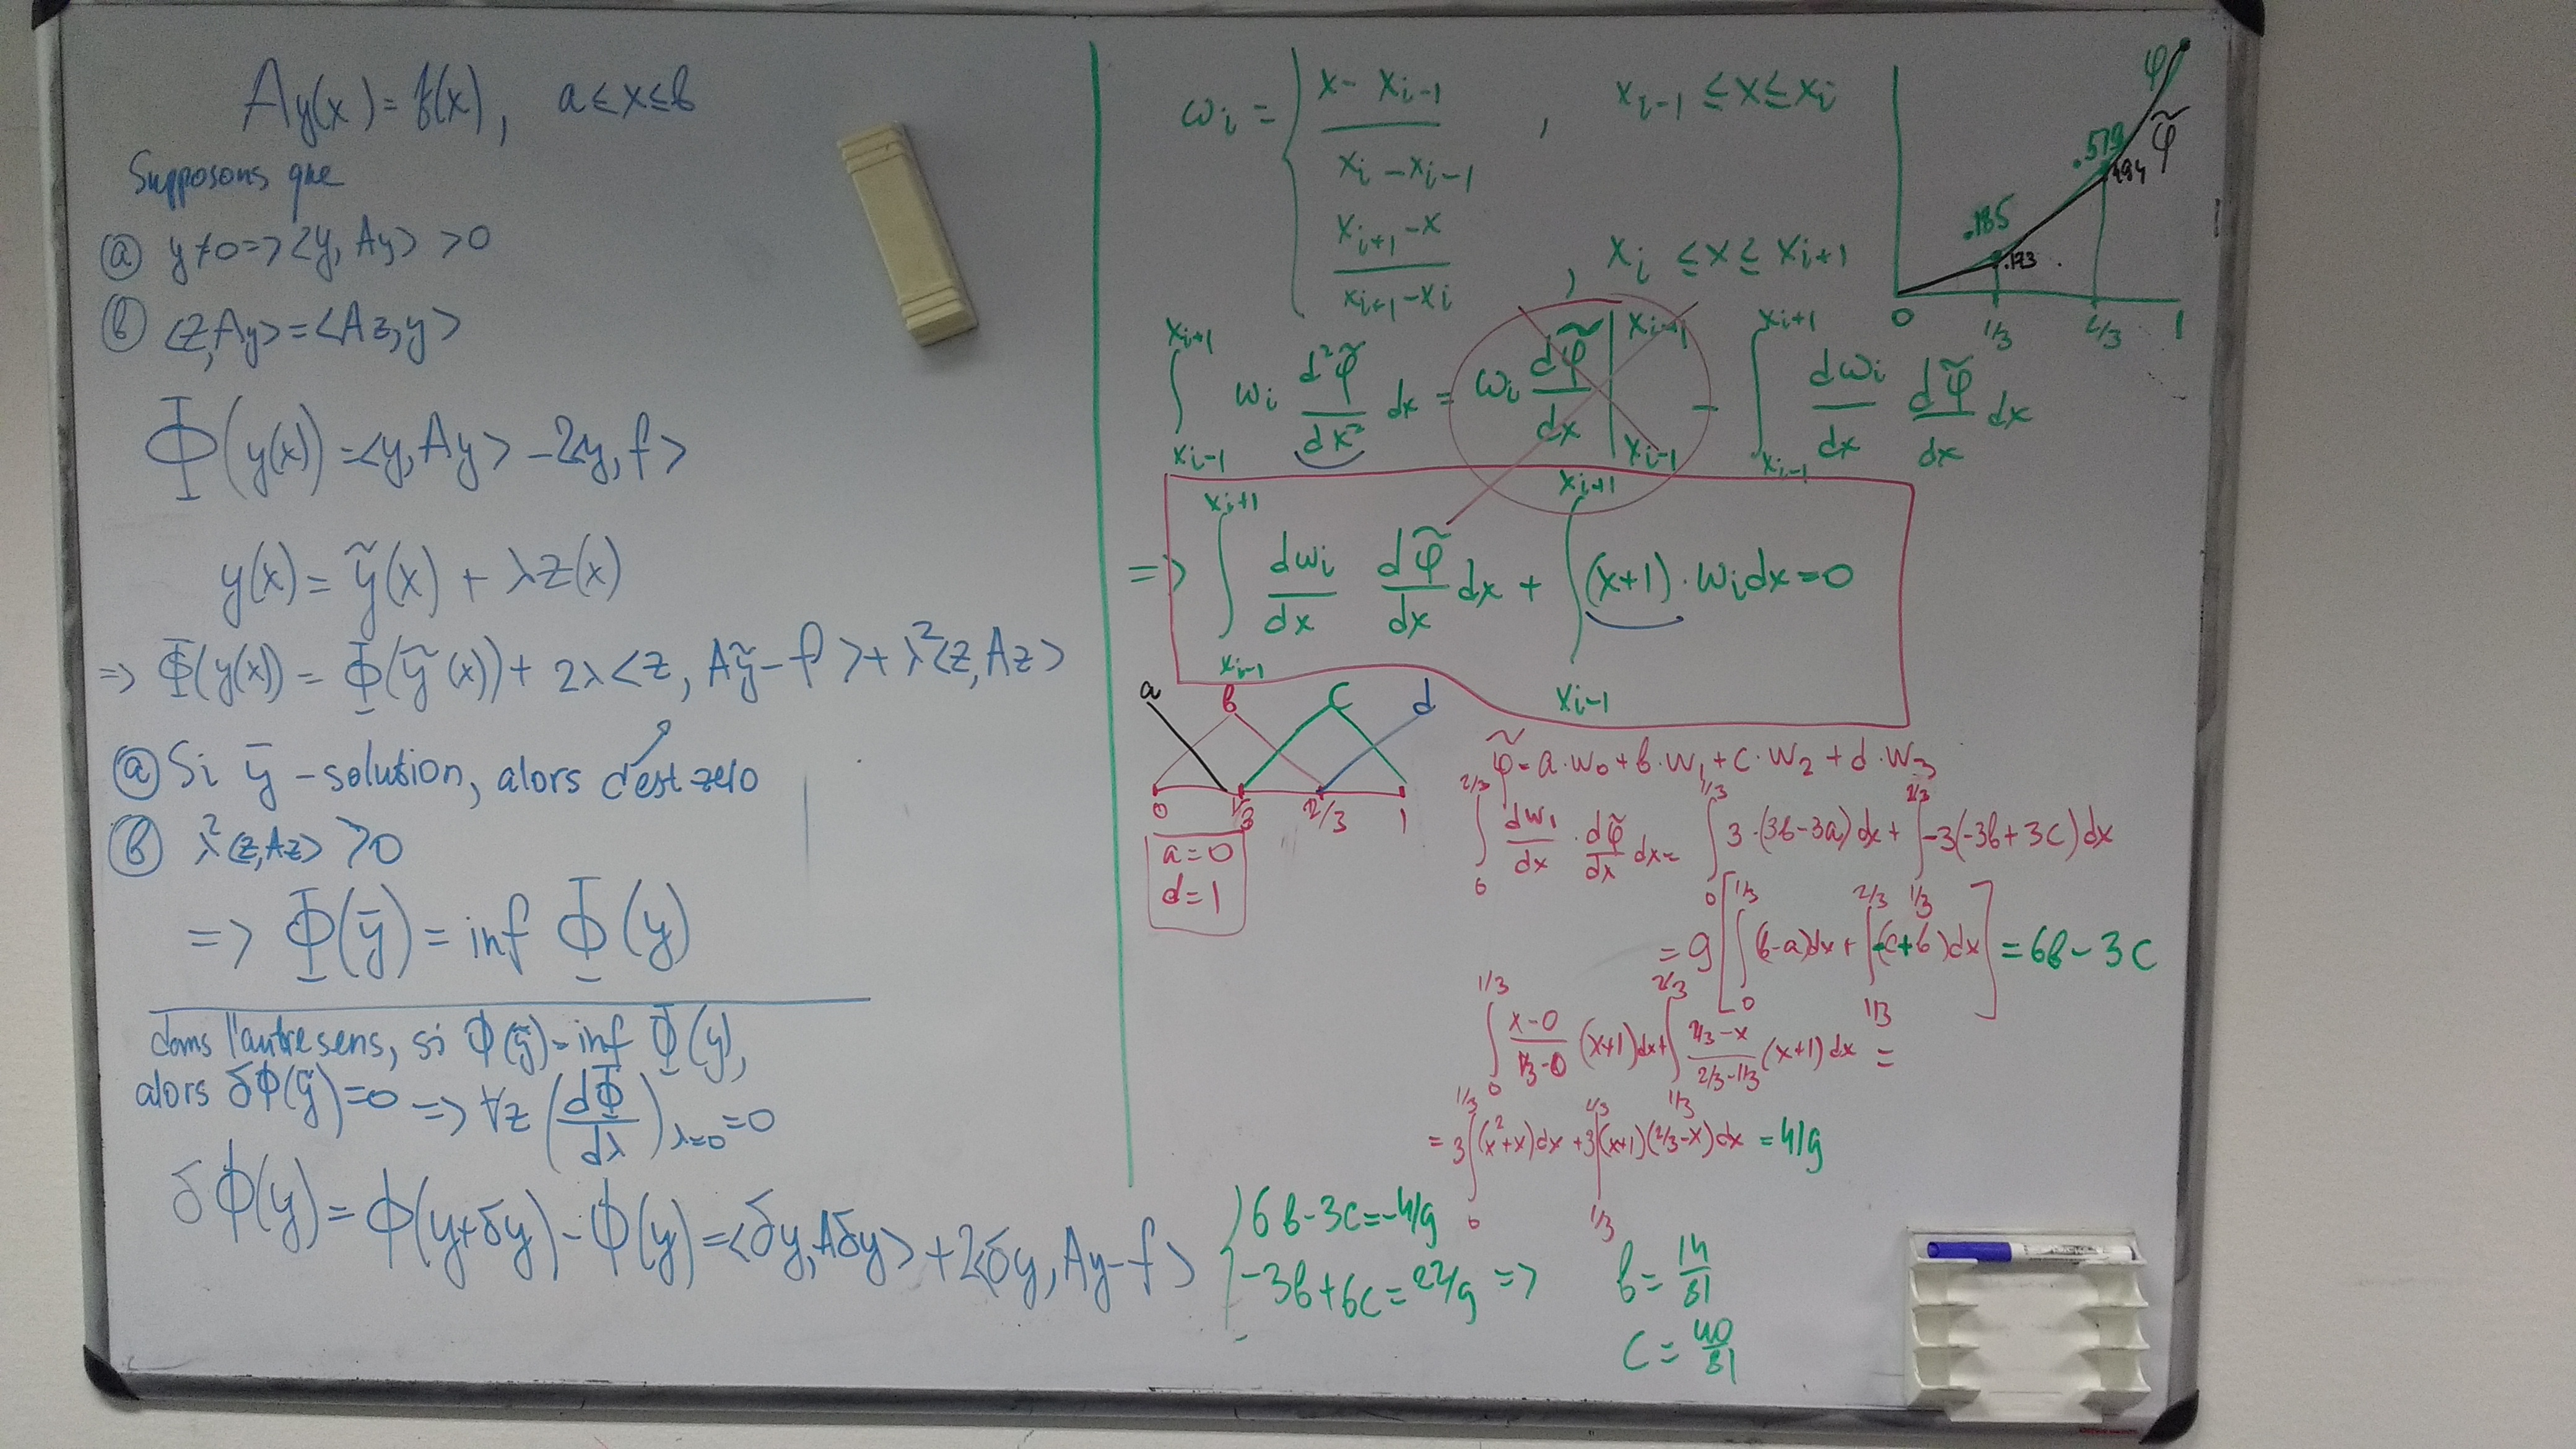 Ay(x) = f(x), a ≤ x ≤ b
Supposons que
ⓐ y≠0 => <y, Ay> > 0
ⓑ <z, Ay> = <Az, y>
Φ(y(x)) = <y, Ay> - 2<y, f>
y(x) = ỹ(x) + λz(x)
=> Φ(y(x)) = Φ(ỹ(x)) + 2λ<z, Aỹ - f> + λ²<z, Az>
ⓐ Si ȳ - solution, alors c'est zero
ⓑ λ²<z, Az> > 0
=> Φ(ȳ) = inf Φ(y)
dans l'autre sens, si Φ(ỹ) = inf Φ(y),
alors δΦ(ỹ) = 0 => ∀z (dΦ/dλ)λ=0 = 0
δΦ(y) = Φ(y+δy) - Φ(y) = <δy, Aδy> + 2<δy, Ay - f>
ωi = { (x - xi-1)/(xi - xi-1) , xi-1 ≤ x ≤ xi
(xi+1 - x)/(xi+1 - xi) , xi ≤ x ≤ xi+1
φ
φ̃
.519
.494
.185
.173
0 1/3 2/3 1
∫ xi-1 xi+1 ωi d²φ̃/dx² dx = ωi dφ̃/dx | xi-1 xi+1 - ∫ xi-1 xi+1 dωi/dx dφ̃/dx dx
=> ∫ xi-1 xi+1 dwi/dx dφ̃/dx dx + ∫ xi-1 xi+1 (x+1)·wi dx = 0
a b c d
0 1/3 2/3 1
a = 0
d = 1
φ̃ = a·w0 + b·w1 + c·w2 + d·w3
∫ 0 2/3 dw1/dx · dφ̃/dx dx = ∫ 0 1/3 3·(3b-3a) dx + ∫ 1/3 2/3 -3(-3b+3c) dx
= 9 [ ∫ 0 1/3 (b-a)dx + ∫ 1/3 2/3 (-c+b)dx ] = 6b - 3c
∫ 0 1/3 (x-0)/(1/3-0) (x+1)dx + ∫ 1/3 2/3 (2/3-x)/(2/3-1/3) (x+1)dx =
= 3 ∫ 0 1/3 (x²+x)dx + 3 ∫ 1/3 2/3 (x+1)(2/3-x)dx = 4/9
{ 6b - 3c = -4/9
-3b + 6c = 22/9 =>
b = 14/81
c = 40/81